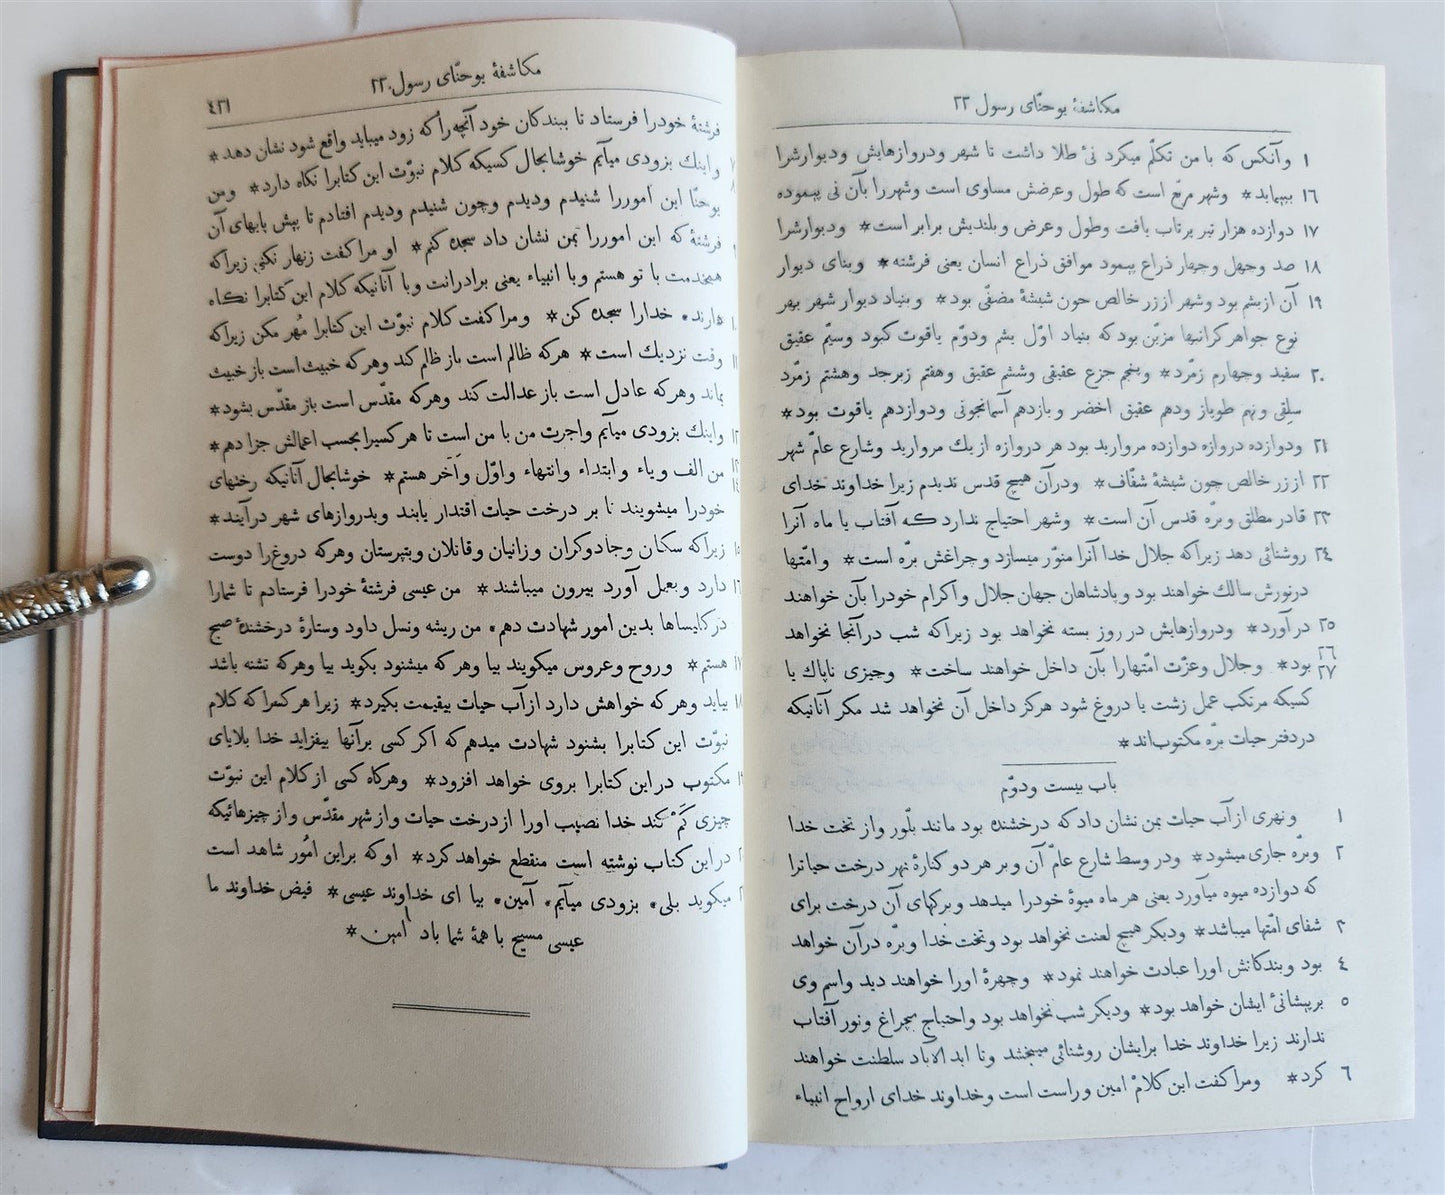 مکاشفهٔ یوحنّای رسول ۲۲
۱ وآنکس که با من تکلّم میکرد نیٔ طلا داشت تا شهر ودروازهایش ودیوارشرا
۱۶ بپیماید* وشهر مربّع است که طول وعرضش مساوی است وشهررا بآن نی پیموده
۱۷ دوازده هزار تیر پرتاب یافت وطول وعرض وبلندیش برابر است* ودیوارشرا
۱۸ صد وچهل وچهار ذراع پیمود موافق ذراع انسان یعنی فرشته* وبنای دیوار
۱۹ آن ازیشم بود وشهر اززر خالص چون شیشهٔ مصفّی بود* وبنیاد دیوار شهر بهر
نوع جواهر گرانبها مزیّن بود که بنیاد اوّل یشم ودوّم یاقوت کبود وسیّم عقیق
۲۰ سفید وچهارم زمّرد* وپنجم جزع عقیقی وششم عقیق وهفتم زبرجد وهشتم زمّرد
سلقی ونهم طوپاز ودهم عقیق اخضر ویازدهم آسمانجونی ودوازدهم یاقوت بود*
۲۱ ودوازده دروازه دوازده مروارید بود هر دروازه از یك مروارید وشارع عامّ شهر
۲۲ از زر خالص چون شیشهٔ شفّاف* ودرآن هیچ قدس ندیدم زیرا خداوند خدای
۲۳ قادر مطلق وبرّه قدس آن است* وشهر احتیاج ندارد که آفتاب یا ماه آنرا
۲۴ روشنائی دهد زیراکه جلال خدا آنرا منوّر میسازد وچراغش برّه است* وامّتها
درنورش سالك خواهند بود وپادشاهان جهان جلال واکرام خودرا بآن خواهند
۲۵ درآورد* ودروازهایش در روز بسته نخواهد بود زیراکه شب درآنجا نخواهد
۲۶ ۲۷ بود* وجلال وعزّت امّتهارا بآن داخل خواهند ساخت* وچیزی ناپاك یا
کسیکه مرتکب عمل زشت یا دروغ شود هرگز داخل آن نخواهد شد مگر آنانیکه
دردفتر حیات برّه مکتوب‌اند*
باب بیست ودوّم
۱ ونهری ازآب حیات بمن نشان داد که درخشنده بود مانند بلّور واز تخت خدا
۲ وبرّه جاری میشود* ودر وسط شارع عامّ آن وبر هر دو کنارهٔ نهر درخت حیاترا
که دوازده میوه میآورد یعنی هر ماه میوهٔ خودرا میدهد وبرگهای آن درخت برای
۳ شفای امّتها میباشد* ودیگر هیچ لعنت نخواهد بود وتخت خدا وبرّه درآن خواهد
۴ بود وبندگانش اورا عبادت خواهند نمود* وچهرهٔ اورا خواهند دید واسم وی
۵ برپیشانیٔ ایشان خواهد بود* ودیگر شب نخواهد بود واحتیاج بچراغ ونور آفتاب
ندارند زیرا خداوند خدا برایشان روشنائی میبخشد وتا ابد الآباد سلطنت خواهند
۶ کرد* ومرا گفت این کلامْ امین وراست است وخداوند خدای ارواح انبیاء
مکاشفهٔ یوحنّای رسول ۲۲
۴۲۱
فرشتهٔ خودرا فرستاد تا ببندگان خود آنچه‌را که زود میباید واقع شود نشان دهد*
واینك بزودی میآیم خوشابحال کسیکه کلام نبوّت این کتابرا نگاه دارد* ومن
یوحنّا این اموررا شنیدم ودیدم وچون شنیدم ودیدم افتادم تا پیش پایهای آن
فرشتهٔ که این اموررا بمن نشان داد سجده کنم* او مرا گفت زنهار نکنی زیراکه
همخدمت با تو هستم وبا انبیاء یعنی برادرانت وبا آنانیکه کلام این کتابرا نگاه
دارند• خدارا سجده کن* ومرا گفت کلام نبوّت این کتابرا مُهر مکن زیراکه
وقت نزدیك است* هرکه ظالم است باز ظلم کند وهرکه خبیث است باز خبیث
بماند وهرکه عادل است باز عدالت کند وهرکه مقدّس است باز مقدّس بشود*
واینك بزودی میآیم واجرت من با من است تا هر کسیرا بحسب اعمالش جزا دهم*
من الف ویاء وابتداء وانتهاء واوّل وآخر هستم* خوشابحال آنانیکه رختهای
خودرا میشویند تا بر درخت حیات اقتدار یابند وبدروازهای شهر درآیند*
زیراکه سگان وجادوگران وزانیان وقاتلان وبتپرستان وهرکه دروغ‌را دوست
دارد وبعمل آورد بیرون میباشند* من عیسی فرشتهٔ خودرا فرستادم تا شمارا
درکلیساها بدین امور شهادت دهم• من ریشه ونسل داود وستارهٔ درخشندهٔ صبح
هستم* وروح وعروس میگویند بیا وهرکه میشنود بگوید بیا وهرکه تشنه باشد
بیاید وهرکه خواهش دارد ازآب حیات بیقیمت بگیرد* زیرا هر کسراکه کلام
نبوّت این کتابرا بشنود شهادت میدهم که اگر کسی برآنها بیفزاید خدا بلایای
مکتوب دراین کتابرا بروی خواهد افزود* وهرگاه کسی از کلام این نبوّت
چیزی کَمْ کند خدا نصیب اورا ازدرخت حیات واز شهر مقدّس واز چیزهائیکه
دراین کتاب نوشته است منقطع خواهد کرد* او که براین امُور شاهد است
میگوید بلی• بزودی میآیم• آمین• بیا ای خداوند عیسی* فیض خداوند ما
عیسی مسیح با همهٔ شما باد آمین*